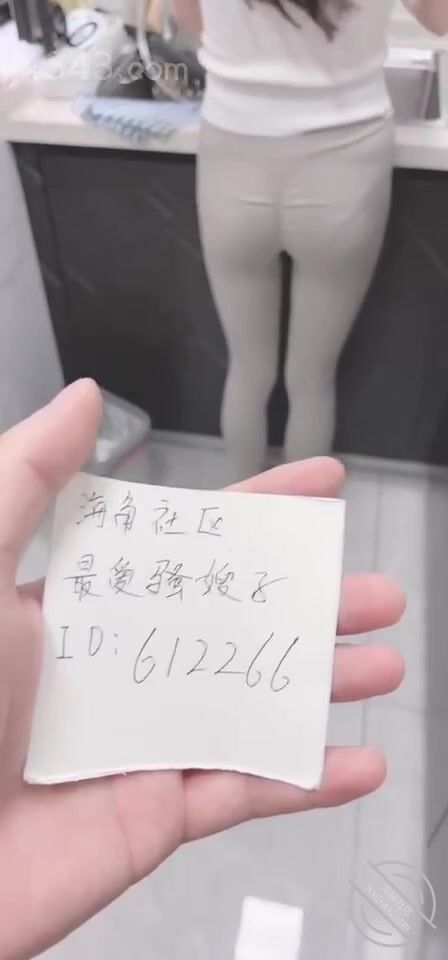 4343.com
海角社区
最爱骚嫂子
ID: 612266